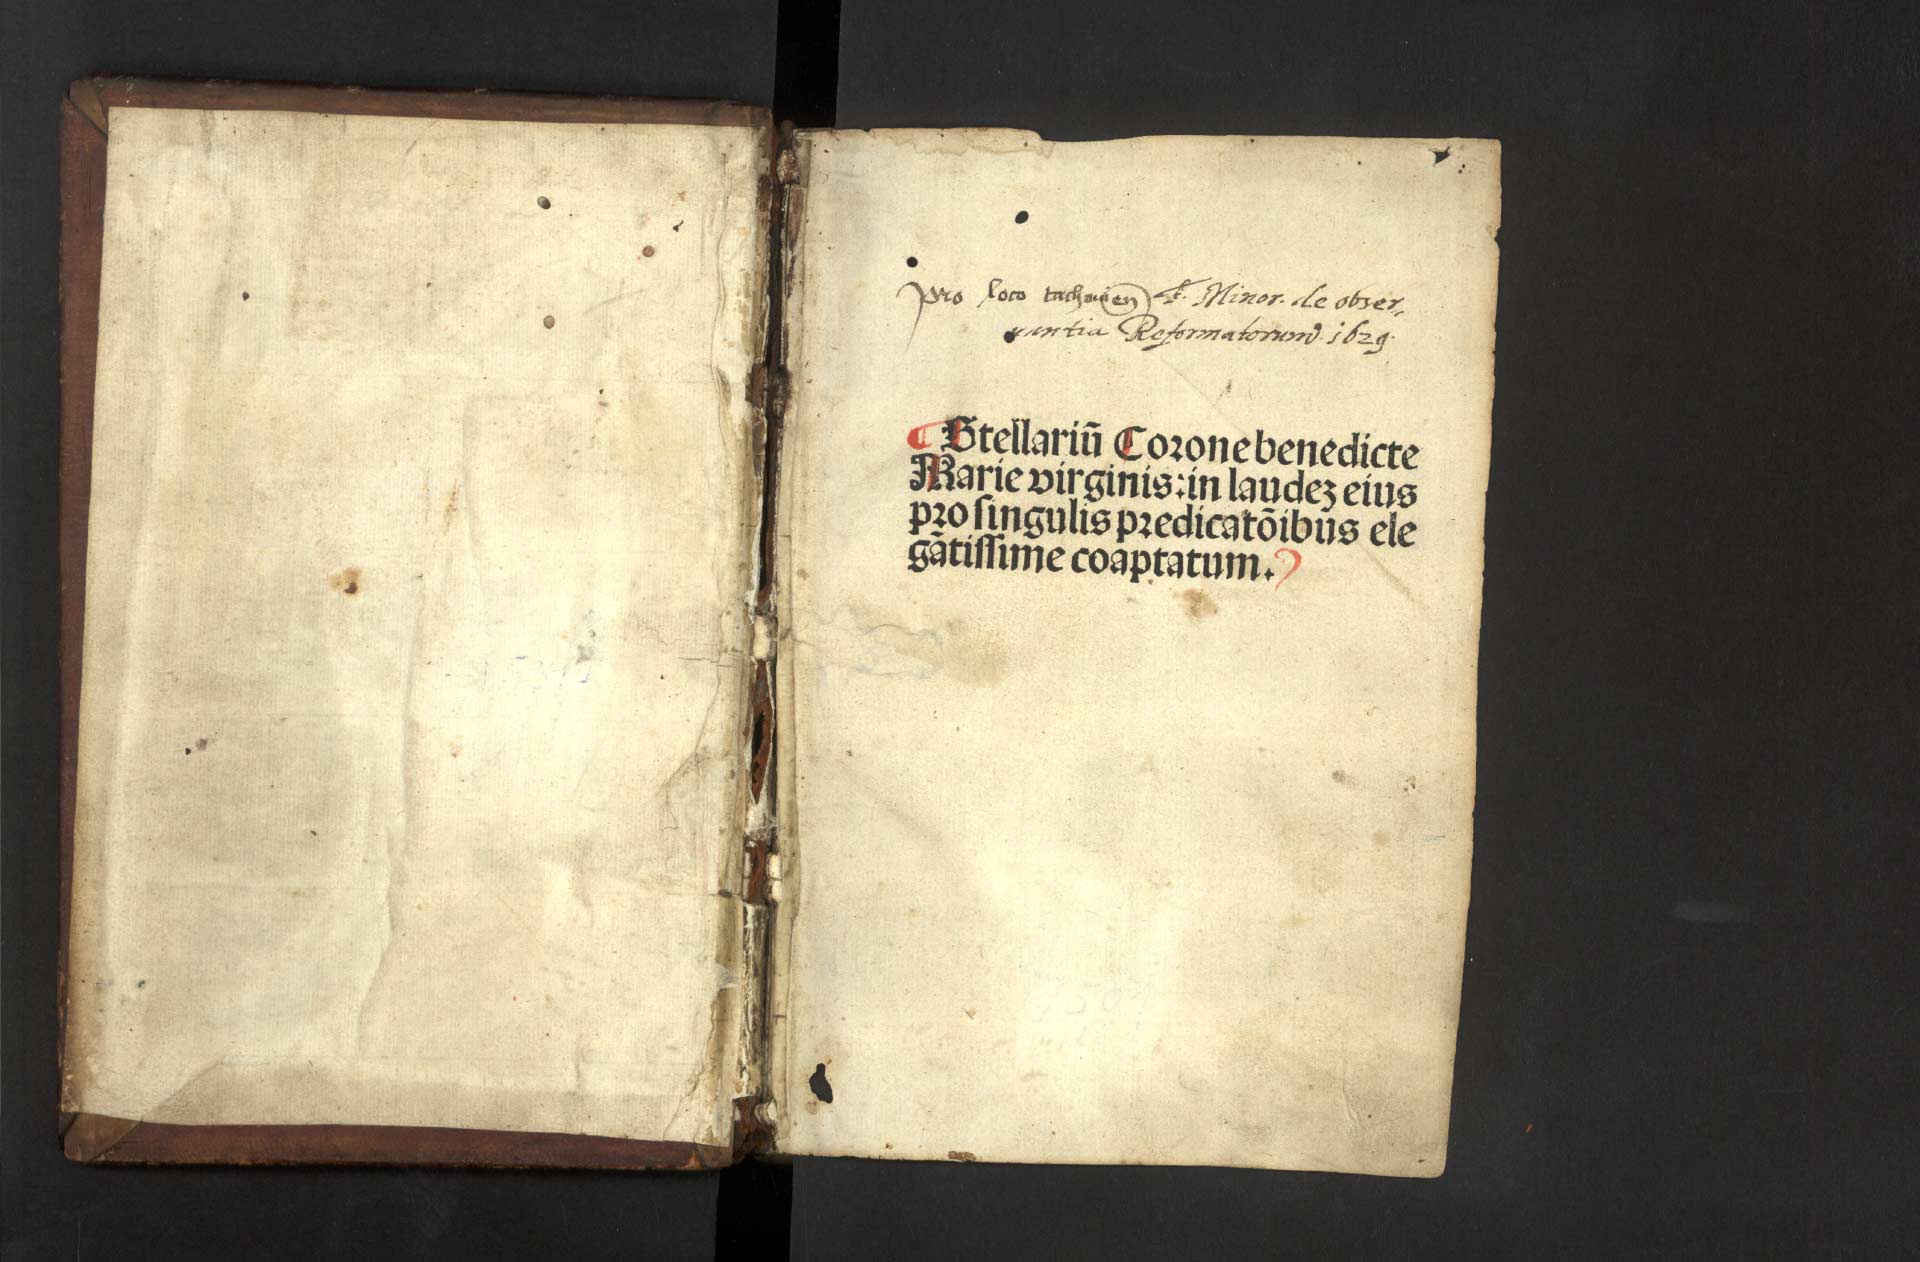 pro loco tachovien F. Minor. de obser,
vantia Reformatorum. 1629.
¶ Stellariū Corone benedicte
Marie virginis: in laudeꝫ eius
pro singulis predicatōibus ele
gātissime coaptatum.